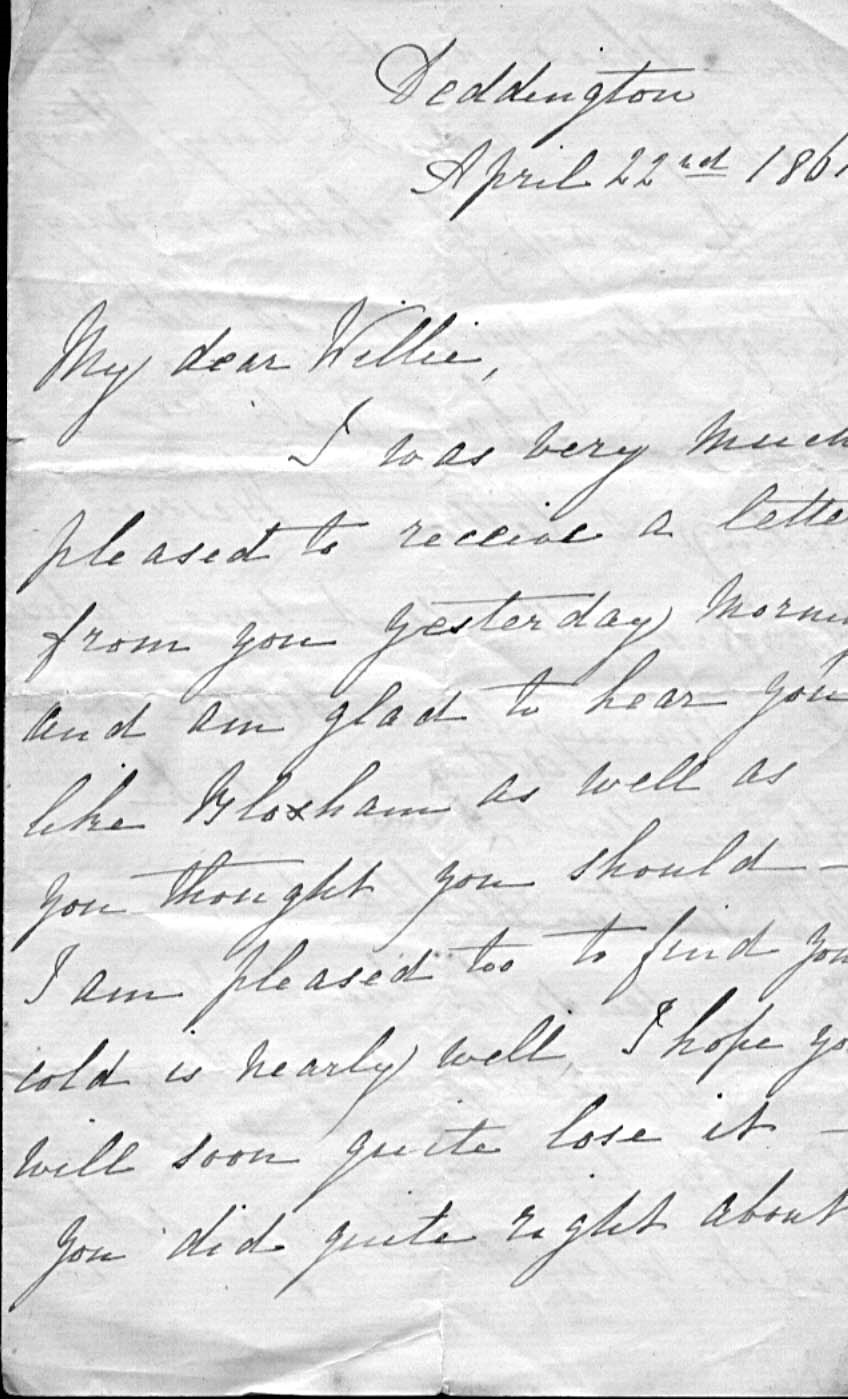 Deddington
April 22nd 186
My dear Willie,
I was very much
pleased to receive a lette
from you yesterday morning
and am glad to hear you
like Bloxham as well as
you thought you should -
I am pleased too to find you
cold is nearly well, I hope yo
will soon quite lose it -
You did quite right about